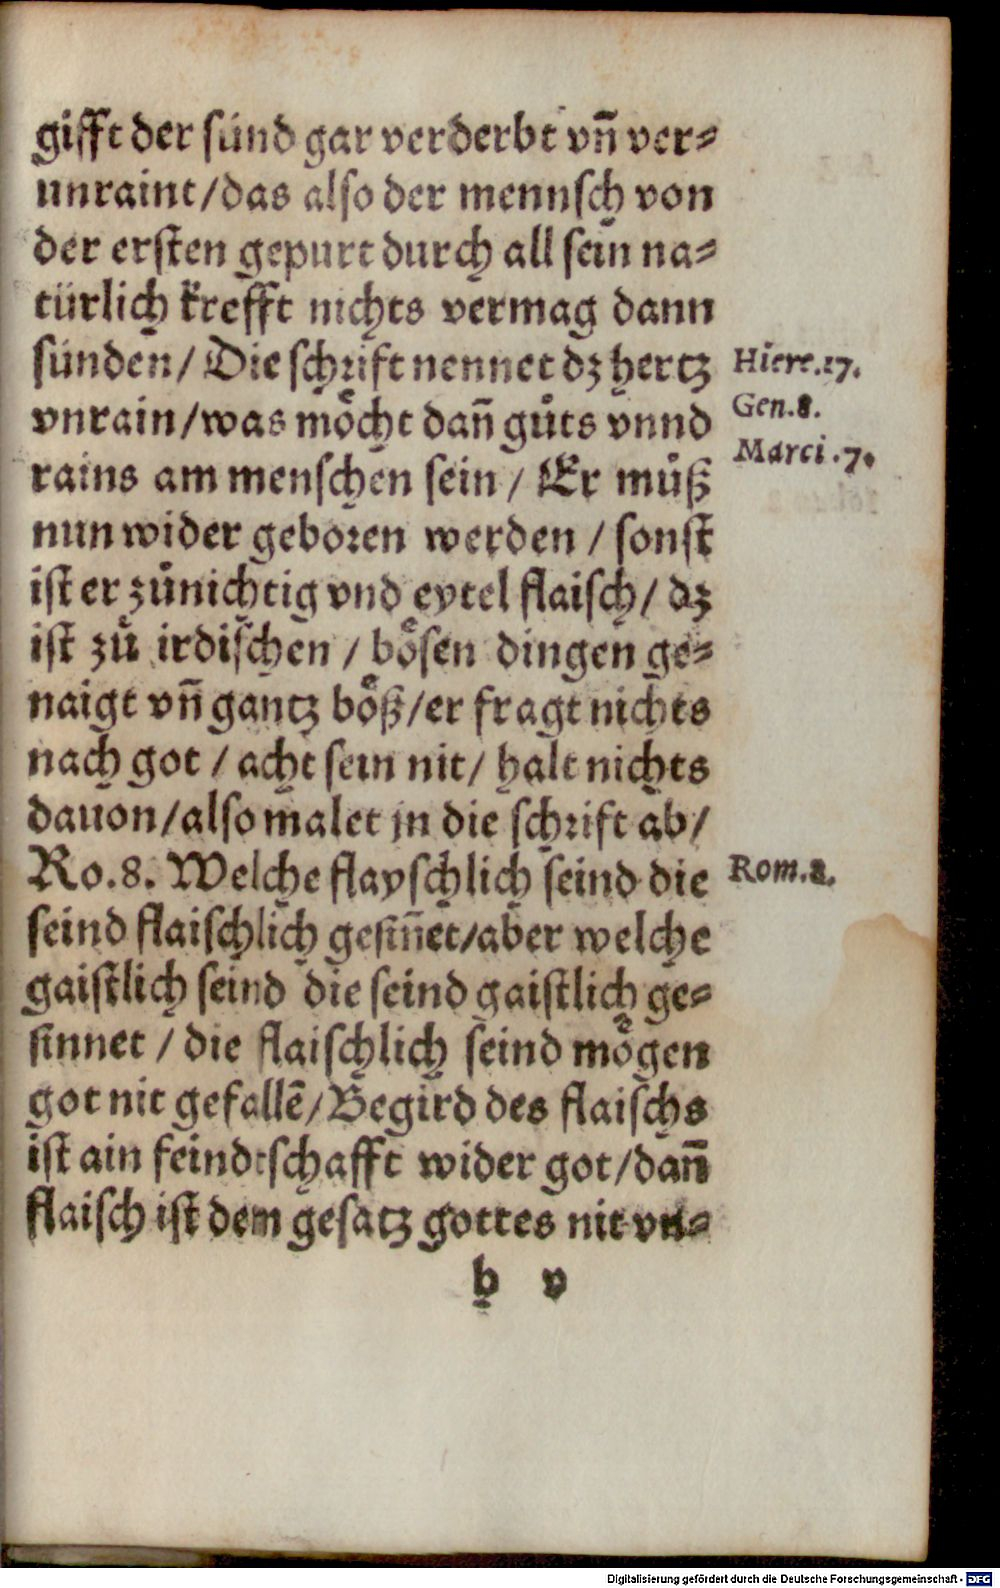 gifft der sünd gar verderbt vñ ver⸗
unraint/das also der mennsch von
der ersten gepurt durch all sein na⸗
türlich krefft nichts vermag dann
sünden/ Die schrift nennet dz hertz
Hiere.17.
vnrain/was moͤcht dañ guͤts vnnd
Gen.8.
rains am menschen sein/ Er muͤß
Marci.7.
nun wider geboren werden / sonst
ist er zuͤnichtig vnd eytel flaisch/ dz
ist zuͤ irdischen / boͤsen dingen ge⸗
naigt vñ gantz boͤß/er fragt nichts
nach got / acht sein nit/ halt nichts
dauon/also malet jn die schrift ab/
Ro.8. Welche flayschlich seind die
Rom.8.
seind flaischlich gesiñet/aber welche
gaistlich seind die seind gaistlich ge⸗
sinnet / die flaischlich seind moͤgen
got nit gefallē/Begird des flaischs
ist ain feindtschafft wider got/dañ
flaisch ist dem gesatz gottes nit vn⸗
b v
Digitalisierung gefördert durch die Deutsche Forschungsgemeinschaft - DFG